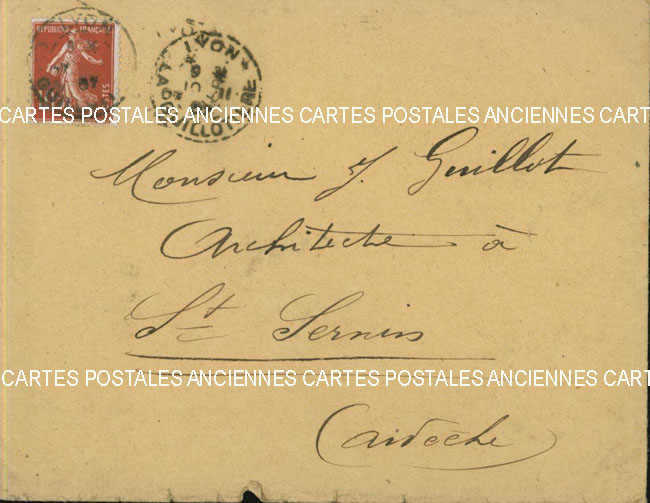 REPUBLIQUE FRANÇAISE
POSTES
LYON
LA GUILLOTIERE
CARTES POSTALES ANCIENNES CARTES POSTALES ANCIENNES CART
Monsieur J. Guillot
Architecte à
St Sernin
CARTES POSTALES ANCIENNES CARTES POSTALES ANCIENNES CART
(Ardèche)